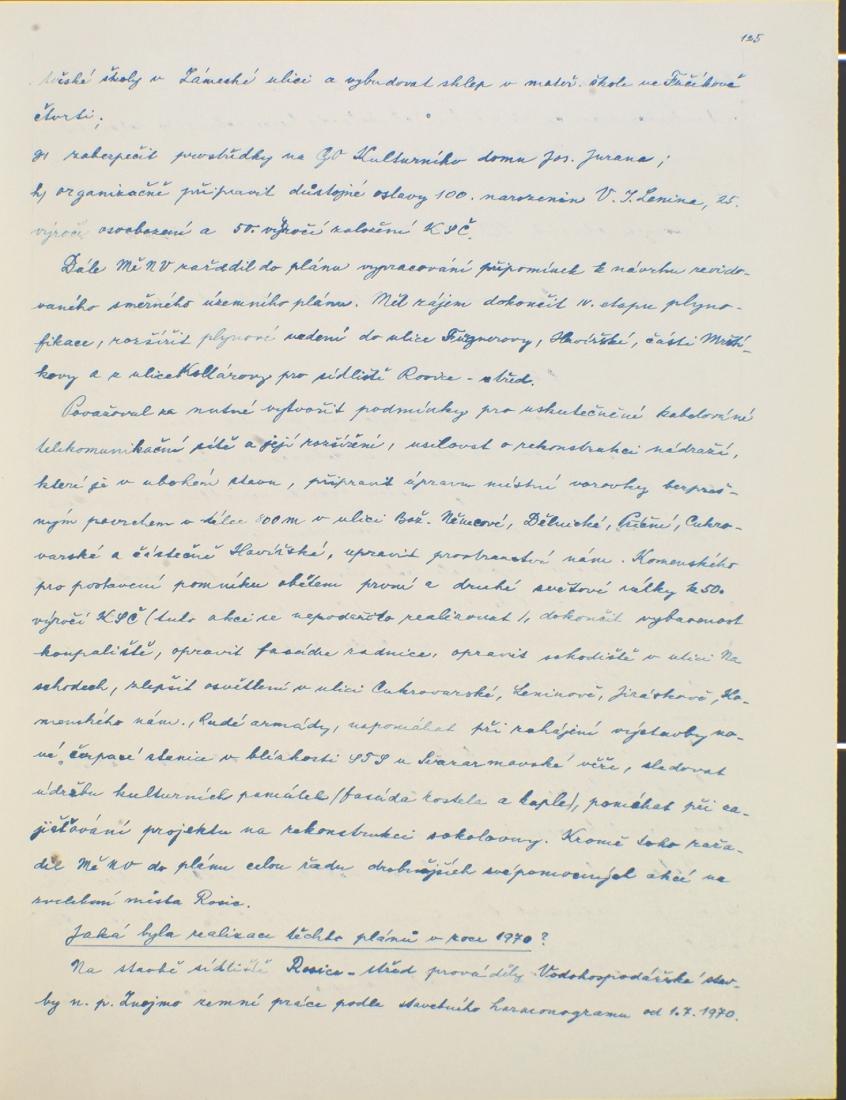 125
školy v Zámecké ulici a vybudovat sklep v mateř. škole ve Fučíkově
čtvrti;
g) zabezpečit prostředky na GO Kulturního domu Jos. Jurana;
h) organizačně připravit důstojné oslavy 100. narozenin V. I. Lenina, 25.
výročí osvobození a 50. výročí založení KSČ.
Dále MěNV zařadil do plánu vypracování připomínek k návrhu revido-
vaného směrného územního plánu. Měl zájem dokončit IV. etapu plyno-
fikace, rozšířit plynové vedení do ulice Fügnerovy, Havířské, části Mrští-
kovy a z ulice Kollárovy pro sídliště Rosice - střed.
Považoval za nutné vytvořit podmínky pro uskutečnění kabelování
telekomunikační sítě a její rozšíření, usilovat o rekonstrukci nádraží,
které je v ubohém stavu, připravit úpravu místní vozovky bezpraš-
ným povrchem v délce 800 m v ulici Bož. Němcové, Dělnické, Říční, Cukro-
varské a částečně Havířské, upravit prostranství nám. Komenského
pro postavení pomníku obětem první a druhé světové války k 50.
výročí KSČ (tuto akci se nepodařilo realizovat), dokončit vybavenost
koupaliště, opravit fasádu radnice, opravit schodiště v ulici Na
schodech, zlepšit osvětlení v ulici Cukrovarské, Leninově, Jiráskově, Ko-
menského nám., Rudé armády, napomáhat při zahájení výstavby no-
vé čerpací stanice v blízkosti STS u Svazarmovské věže, sledovat
údržbu kulturních památek (fasáda kostela a kaple), pomáhat při za-
jišťování projektu na rekonstrukci sokolovny. Kromě toho zařa-
dil MěNV do plánu celou řadu drobnějších svépomocných akcí na
zvelebení města Rosic.
Jaká byla realizace těchto plánů v roce 1970?
Na stavbě sídliště Rosice - střed prováděly Vodohospodářské stav-
by n. p. Znojmo zemní práce podle stavebního harmonogramu od 1.7.1970.